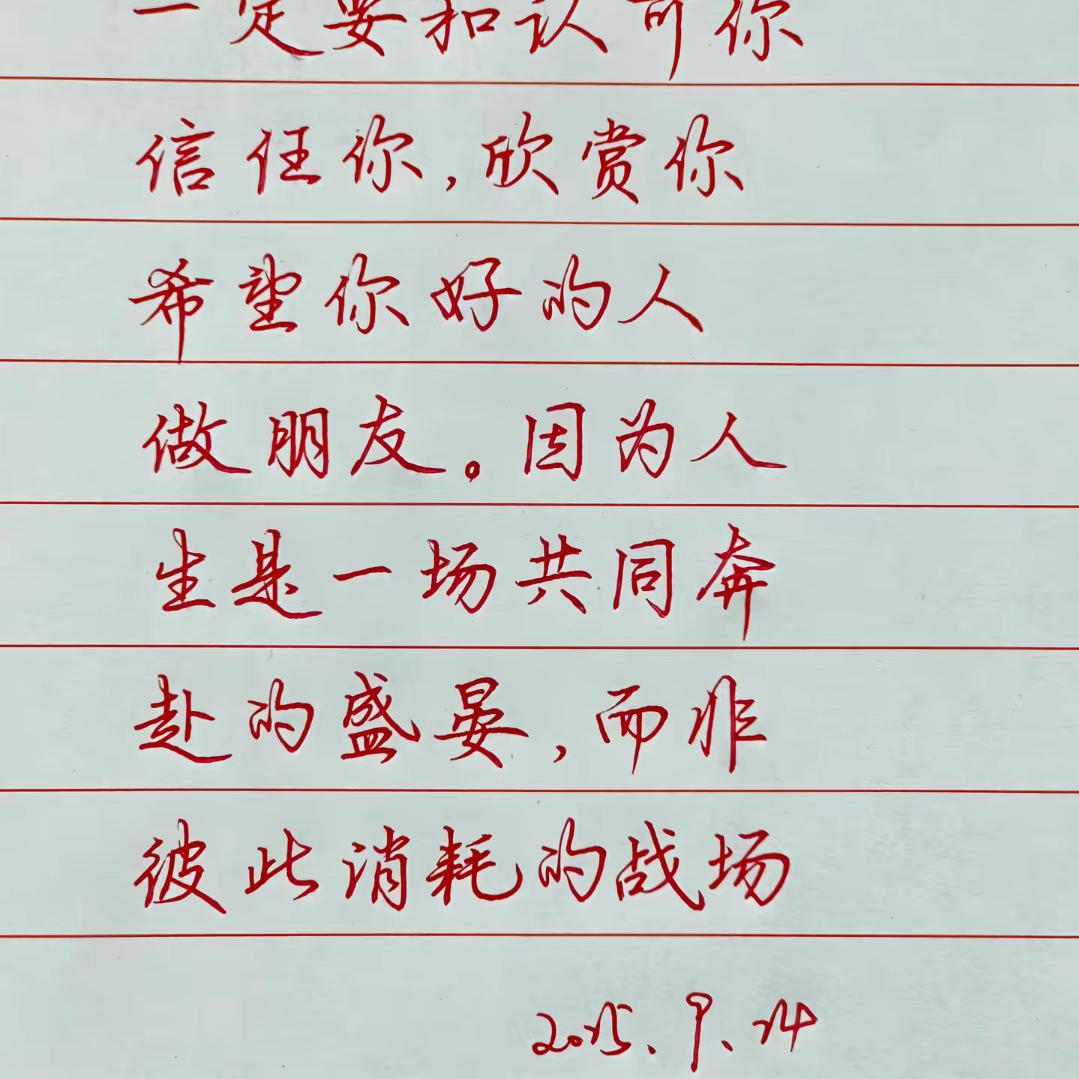 一定要和认可你
信任你,欣赏你
希望你好的人
做朋友。因为人
生是一场共同奔
赴的盛晏,而非
彼此消耗的战场
2025.9.24